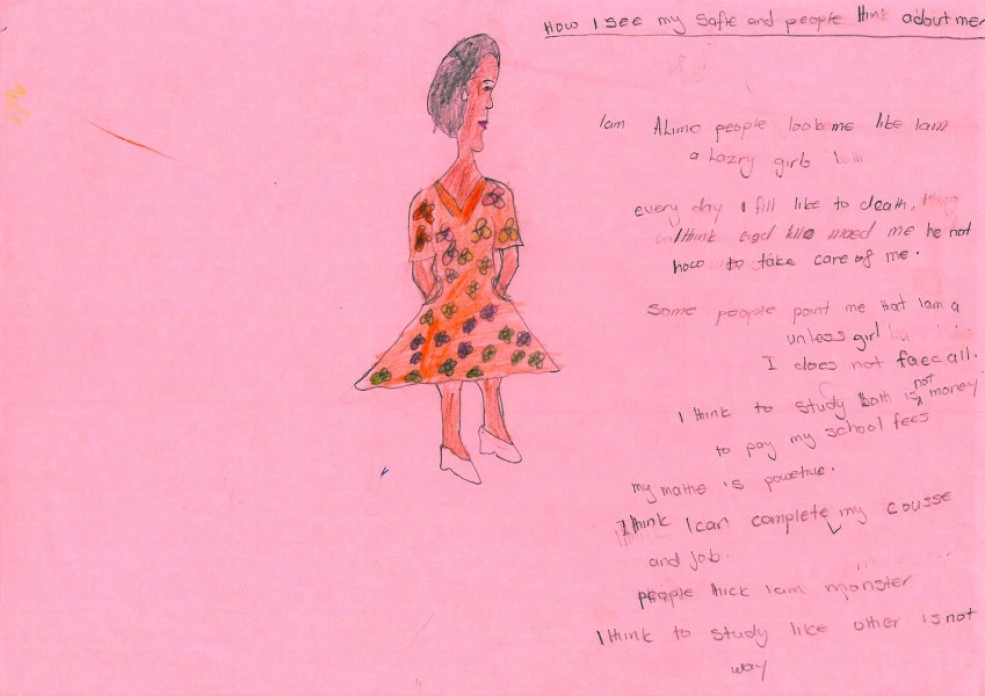 How I see my safie and people think adout mer
Iam ALimo people look me like Iam
a Lazry girls
every day I fill like to death.
I think God me he not
how to take care of me.
Some people point me that Iam a
unless girl
I does not faec all.
I think to study both is not money
to pay my school fees
my mathe is powetive.
I think I can complete my cousse
and job.
people thick Iam monster
I think to study like other is not
way